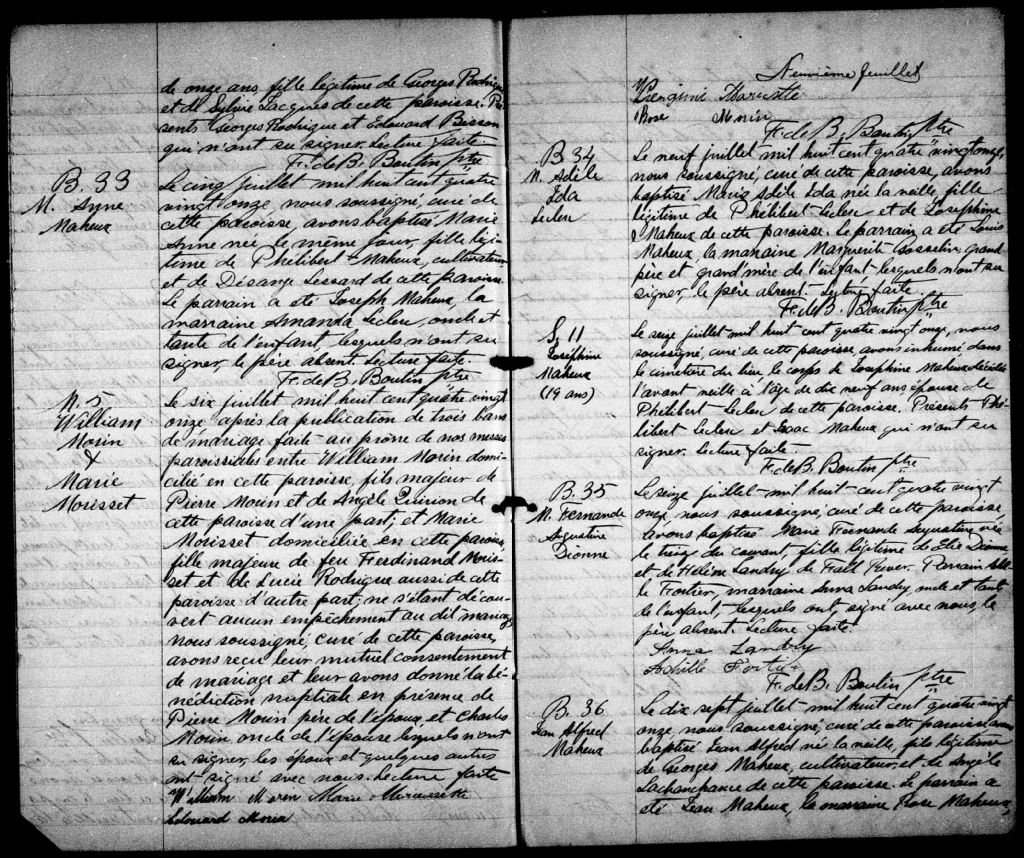 de onze ans, fille légitime de Georges Rodrigue
et de Sylvie Jacques de cette paroisse. Pré
sents Georges Rodrigue et Edouard Bisson
qui n'ont su signer. Lecture faite.
F. de B. Boutin ptre
B. 33
M. Anne
Maheux
Le cinq juillet mil huit cent quatre
vingt onze nous soussigné, curé de
cette paroisse avons baptisé Marie
Anne née le même jour, fille légi-
time de Philibert Maheux, cultivateur
et de Désange Lessard de cette paroisse
Le parrain a été Joseph Maheux, la
marraine Amanda Leclerc, oncle et
tante de l'enfant lesquels n'ont su
signer, le père absent. Lecture faite.
F. de B. Boutin ptre
M. 5
William
Morin
&
Marie
Morisset
Le six juillet mil huit cent quatre vingt
onze après la publication de trois bans
de mariage faite au prône de nos messes
paroissiales entre William Morin domi-
cilié en cette paroisse, fils majeur de
Pierre Morin et de Angèle Quirion de
cette paroisse d'une part; et Marie
Morisset domiciliée en cette paroisse
fille majeure de feu Ferdinand Moris-
set et de Lucie Rodrigue aussi de cette
paroisse d'autre part; ne s'étant décou-
vert aucun empêchement au dit mariage
nous soussigné, curé de cette paroisse,
avons reçu leur mutuel consentement
de mariage et leur avons donné la bé-
nédiction nuptiale en présence de
Pierre Morin père de l'époux et Charles
Morin oncle de l'épouse lesquels n'ont
su signer, les époux et quelques autres
ont signé avec nous. Lecture faite
William Morin Marie Morissette
Edouard Morin
Neuvième feuillet
Marcotte
Rose Morin
F. de B. Boutin ptre
B 34
M. Adèle
Ida
Leclerc
Le neuf juillet mil huit cent quatre vingt onze,
nous soussigné, curé de cette paroisse, avons
baptisé Marie Adèle Ida née la veille, fille
légitime de Philibert Leclerc et de Joséphine
Maheux de cette paroisse. Le parrain a été Louis
Maheux, la marraine Marguerite Gosselin grand
père et grand'mère de l'enfant lesquels n'ont su
signer, le père absent. Lecture faite.
F. de B. Boutin ptre
S. 11
Joséphine
Maheux
(19 ans)
Le seize juillet mil huit cent quatre vingt onze, nous
soussigné, curé de cette paroisse, avons inhumé dans
le cimetière du lieu le corps de Joséphine Maheux décédée
l'avant veille à l'âge de dix neuf ans, épouse de
Philibert Leclerc de cette paroisse. Présents Phi-
libert Leclerc et Isaac Maheux qui n'ont su
signer. Lecture faite.
F. de B. Boutin ptre
B. 35
M. Fernande
Augustine
Dionne
Le seize juillet mil huit cent quatre vingt
onze, nous soussigné, curé de cette paroisse
avons baptisé Marie Fernande Augustine née
le treize du courant, fille légitime de Elie Dionne
et de Hélène Landry de Fall River. Parrain
Fortier, marraine Anna Landry oncle et tante
de l'enfant, lesquels ont signé avec nous, le
père absent. Lecture faite.
Anna Landry
Achille Fortier
F. de B. Boutin ptre
B. 36
Jean Alfred
Maheux
Le dix sept juillet mil huit cent quatre vingt
onze, nous soussigné, curé de cette paroisse avons
baptisé Jean Alfred né la veille, fils légitime
de Georges Maheux, cultivateur, et de Angèle
Lachance de cette paroisse. Le parrain a
été Jean Maheux, la marraine Rose Maheux,